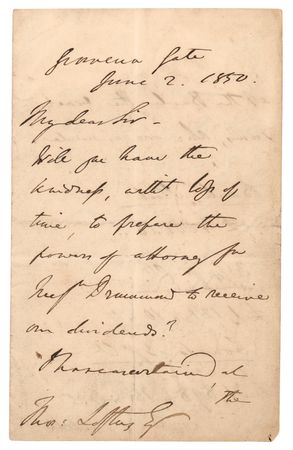 Grosvenor Gate
June 2. 1850.
My dear Sir -
Will you have the
kindness, with loss of
time, to prepare the
powers of attorney for
Messrs Drummond to receive
our dividends?
I have ascertained at
the
Thos: Loftus Esq